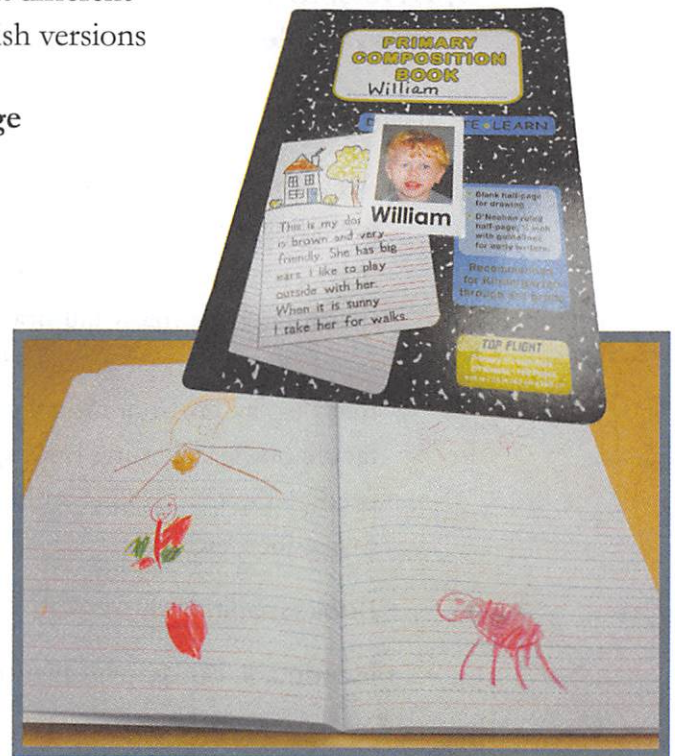 different
ish versions
ge
PRIMARY
COMPOSITION
BOOK
William
TE • LEARN
William
This is my dog
is brown and very
friendly. She has big
ears. I like to play
outside with her.
When it is sunny
I take her for walks.
Blank half-page
for drawing
D'Nealian ruled
half-page, ½ inch
with guidelines
for early writers
Recommended
for Kindergarten
through 3rd grade
TOP FLIGHT